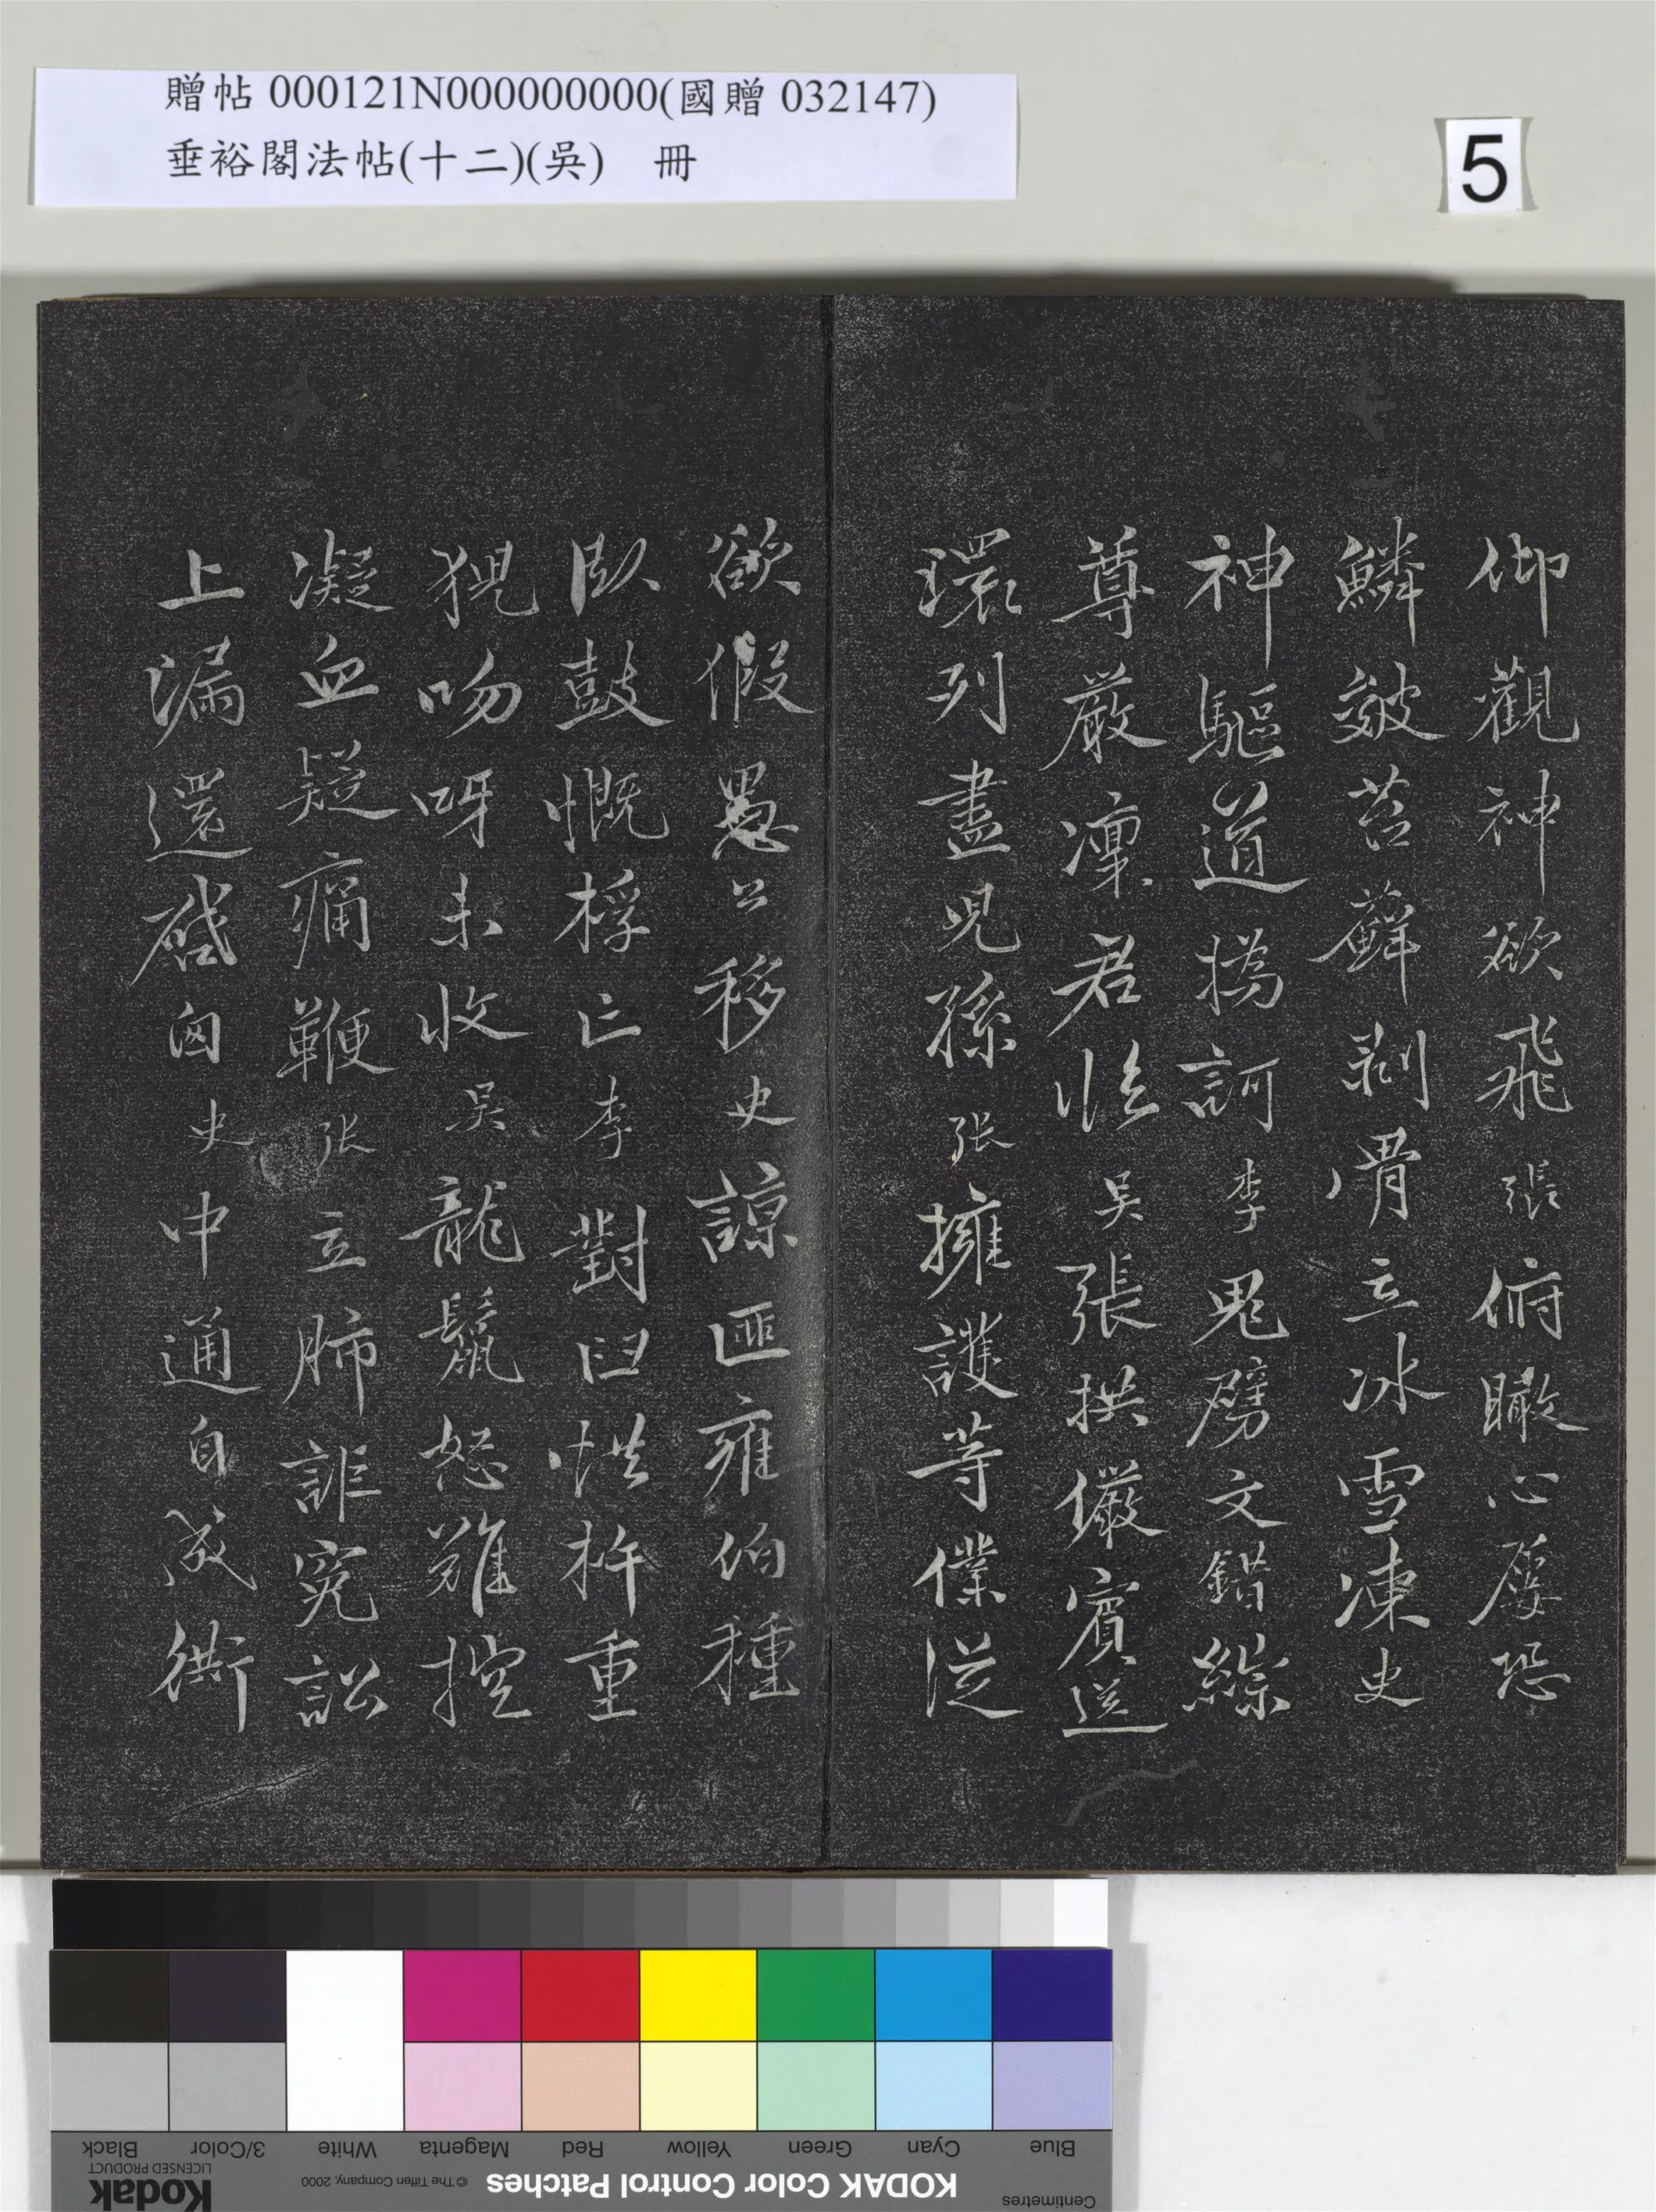 贈帖 000121N000000000(國贈 032147)
垂裕閣法帖(十二)(吳) 冊
5
仰觀神欲飛張俯瞰心屢恐
鱗皴苔蘚剥骨立冰雪凍史
神驅道撝訶李鬼劈文錯綜
尊嚴凜君臨吳張拱儼賓送
環列盡兒孫張擁護等僕從
欲假愚公移史諒匪雍伯種
臥鼓慨桴亡李對臼惜杵重
猊吻呀未收吳龍鬣怒難控
凝血疑痛鞭張立肺詎冤訟
上漏還啟匈史中通自成衖
Black
3/Color
White
Magenta
Red
Yellow
Green
Cyan
Blue
Kodak
LICENSED PRODUCT
© The Tiffen Company, 2000
KODAK Color Control Patches
Centimetres